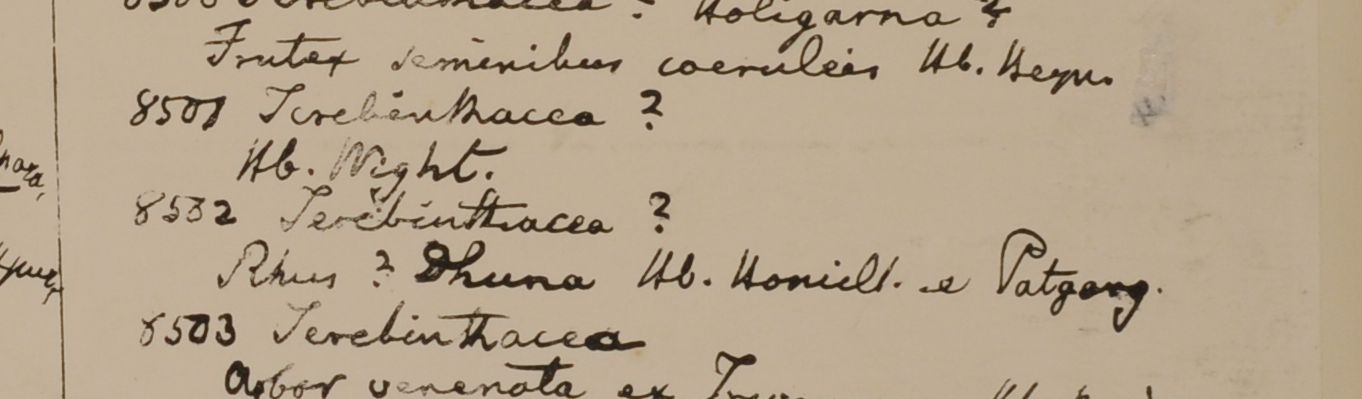 Terebinthacea ? Holigarna ?
Frutex seminibus coeruleis Hb. Heyn.
8501 Terebinthacea ?
Hb. Wight.
8502 Terebinthacea ?
Rhus ? Dhuna Hb. Hamilt. e Patgong.
8503 Terebinthacea
Arbor venenata ex